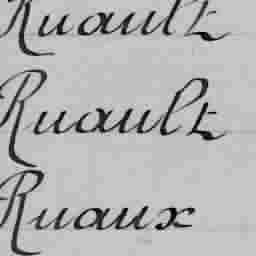 Ruault
Ruault
Ruaux